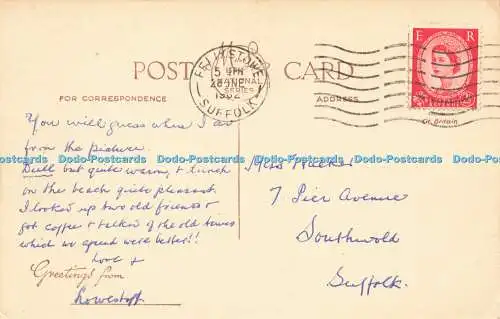 POST CARD
FOR CORRESPONDENCE
ADDRESS
NATIONAL
SERIES
FELIXSTOWE
SUFFOLK
E R
Gt. Britain
You will guess where I am
from the picture.
Dull but quite warm, & lunch
on the beach quite pleasant.
I looked up two old friends &
got coffee & talked of the old times
which we agreed were better!!
Love &
Greetings from
Lowestoft
Mrs
7 Pier Avenue
Southwold
Suffolk.
Dodo-Postcards Dodo-Postcards Dodo-Postcards Dodo-Postcards Dodo-Postcards Dodo-Postcards